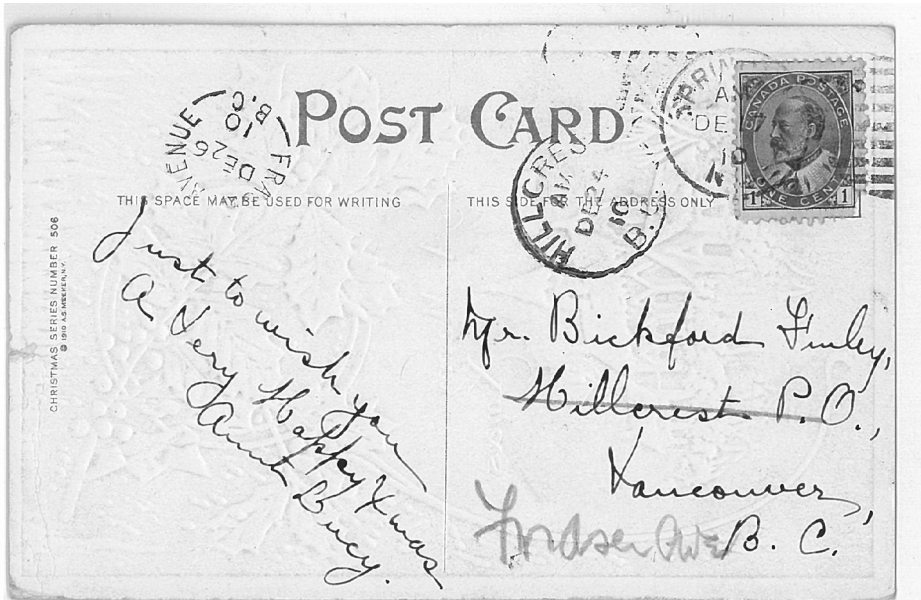 POST CARD
THIS SPACE MAY BE USED FOR WRITING
THIS SIDE FOR THE ADDRESS ONLY
CHRISTMAS SERIES NUMBER 506
© 1910 A.S. MEEKER, N.Y.
AVENUE
DE 26
10
B.C
FRA
HILLCRES
AM
DE 24
10
B.C
SPRIN
A
DE
10
CANADA POSTAGE
1 ONE CENT 1
Just to wish you
A Very Happy Xmas
Aunt Lucy.
Mr. Bickford Finley,
Hillcrest P.O.,
Vancouver,
B. C.
Fraser Ave